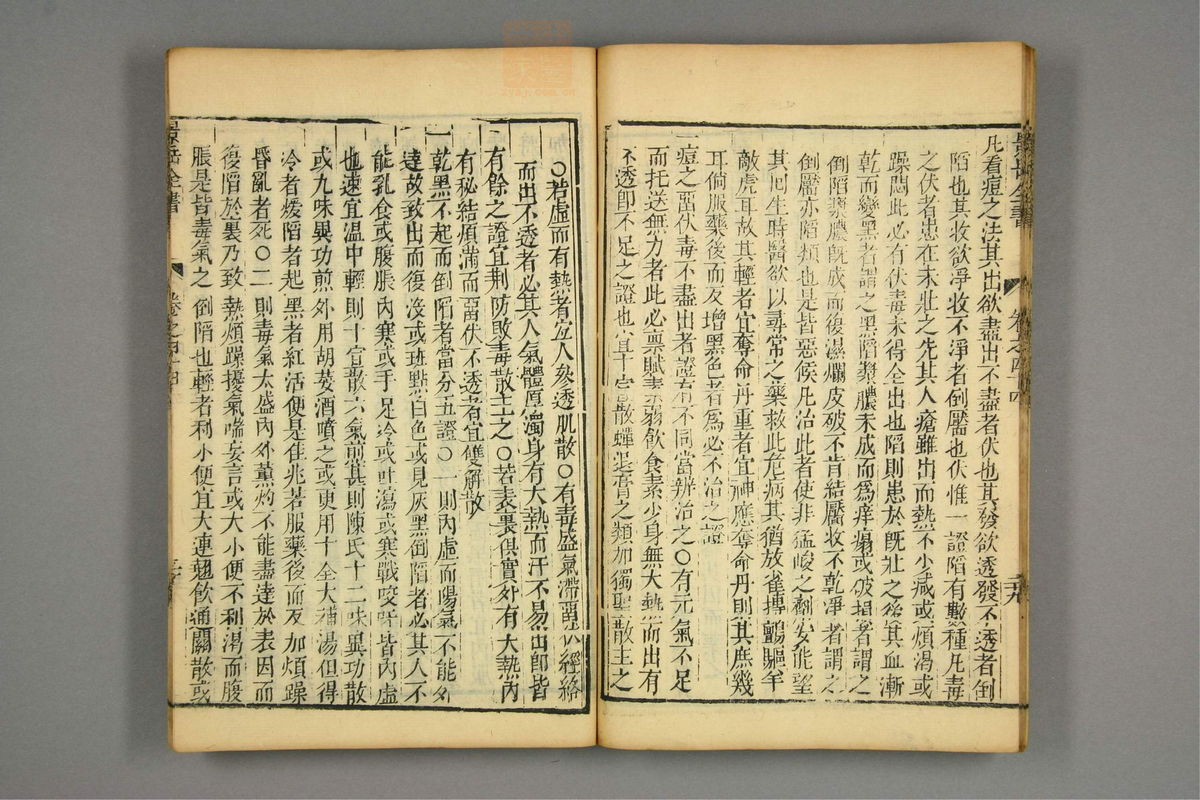 凡看痘之法其出欲盡出不盡者伏也其發欲透發不透者倒
陷也其收欲淨收不淨者倒靨也伏惟一證陷有數種凡毒
之伏者患在未壯之先其人瘡雖出而熱不少減或煩渴或
躁悶此必有伏毒未得全出也陷則患於既壯之後其血漸
乾而變黑者謂之黑陷漿膿未成而為痒塌或破損者謂之
倒陷漿膿既成而復濕爛皮破不肯結靨收不乾淨者謂之
倒靨亦陷類也是皆惡候凡治此者使非猛峻之劑安能望
其囘生時醫欲以尋常之藥救此危病其猶放雀搏鸇驅羊
敵虎耳故其輕者宜奪命丹重者宜神應奪命丹則其庶幾
耳倘服藥後而反增黑色者為必不治之證
一痘之畱伏毒不盡出者證有不同當辨治之○有元氣不足
而托送無力者此必禀賦素弱飲食素少身無大熱而出有
不透卽不足之證也宜十宣散蟬蛻膏之類加獨聖散主之
景岳全書
卷之四十四
○若虛而有熱者宜人參透肌散○有毒盛氣滯畱伏經絡
而出不透者必其人氣體厚濁身有大熱而汗不易出卽皆
有餘之證宜荆防敗毒散主之○若表裏俱實外有大熱內
有秘結煩滿而畱伏不透者宜雙解散
一乾黑不起而倒陷者當分五證○一則內虛而陽氣不能外
達故致出而復沒或斑點白色或見灰黑倒陷者必其人不
能乳食或腹脹內寒或手足冷或吐瀉或寒戰咬牙皆內虛
也速宜溫中輕則十宣散六氣煎甚則陳氏十二味異功散
或九味異功煎外用胡荽酒噴之或更用十全大補湯但得
冷者煖陷者起黑者紅活便是佳兆若服藥後而反加煩躁
昏亂者死○二則毒氣太盛內外薰灼不能盡達於表因而
復陷於裏乃致熱煩躁擾氣喘妄言或大小便不利渴而腹
脹是皆毒氣之倒陷也輕者利小便宜大連翹飲通關散或
景岳全書
卷之四十四